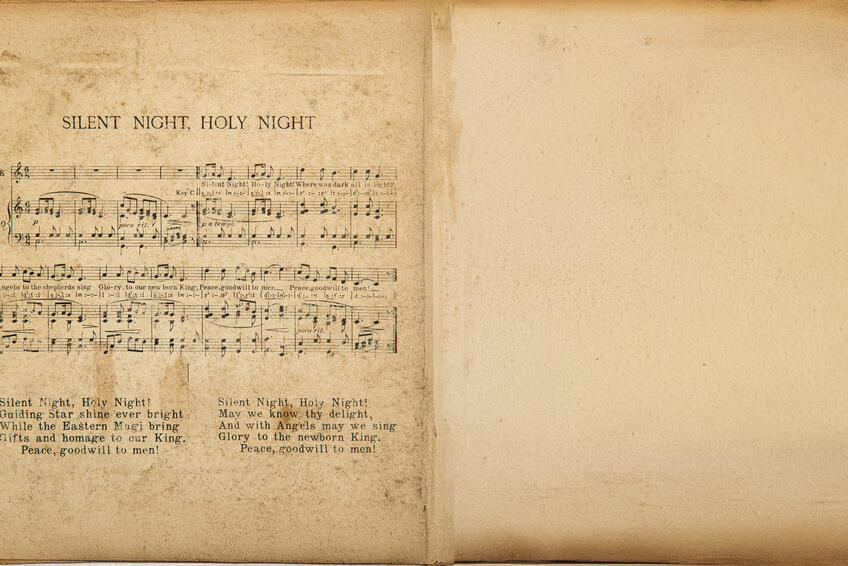 SILENT NIGHT, HOLY NIGHT
Silent Night! Ho-ly Night! Where was dark all is light!
Key C
p
poco rit.
p a tempo
ngels to the shepherds sing Glo-ry to our new born King; Peace, goodwill to men Peace, goodwill to men!
poco rit.
Silent Night, Holy Night!
Guiding Star shine ever bright
While the Eastern Magi bring
Gifts and homage to our King.
Peace, goodwill to men!
Silent Night, Holy Night!
May we know thy delight,
And with Angels may we sing
Glory to the newborn King.
Peace, goodwill to men!